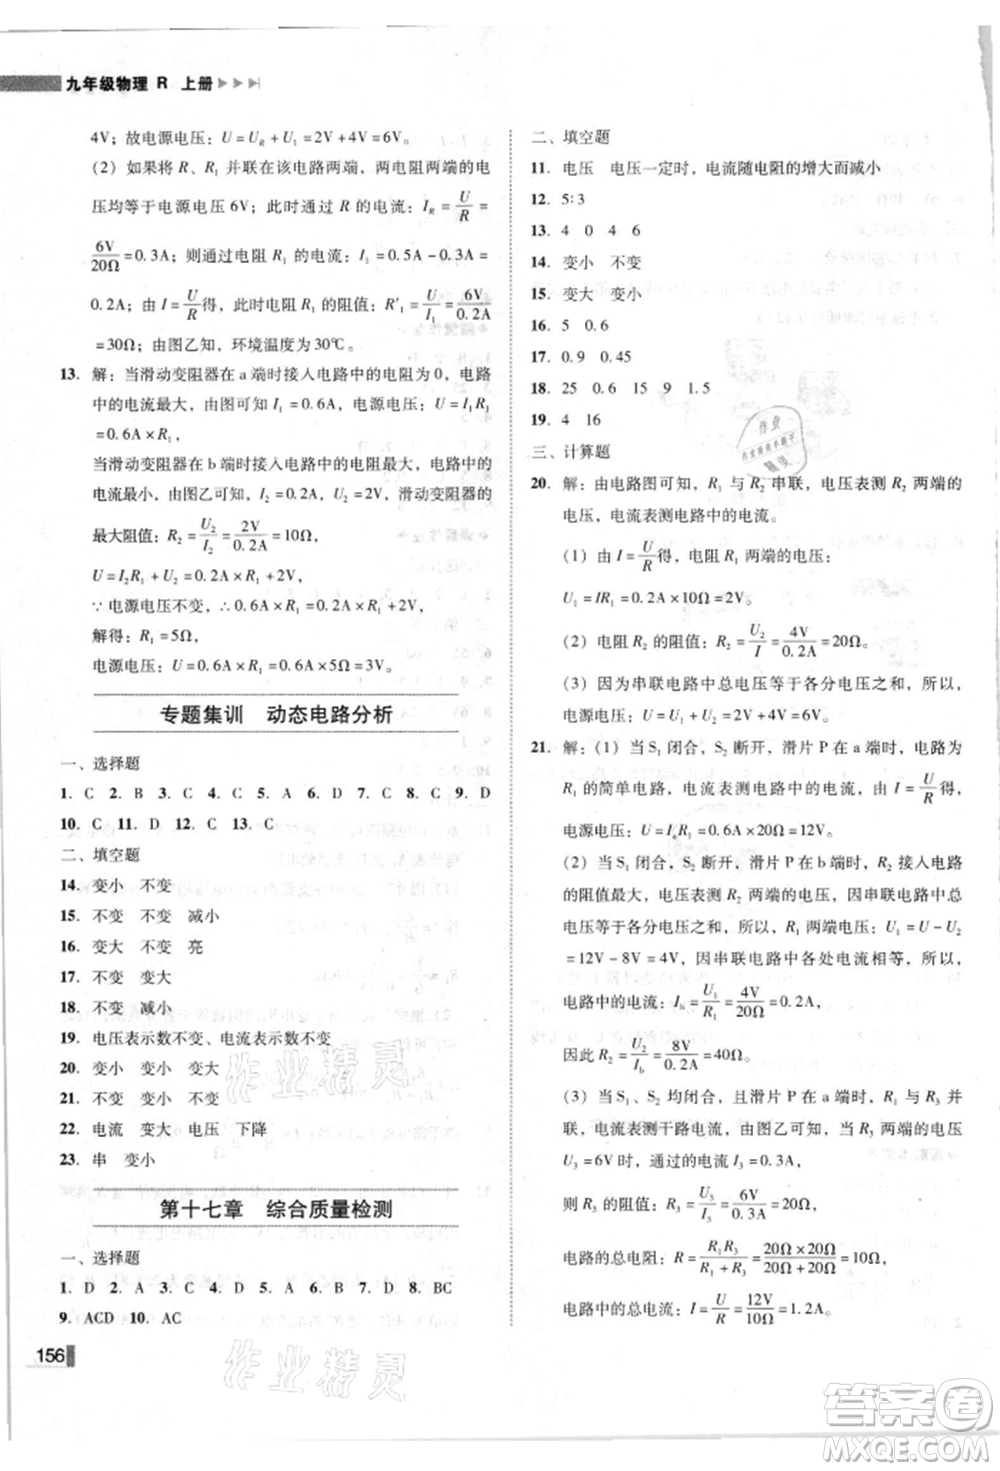 九年级物理 R 上册
4V；故电源电压：U=U_R+U_1=2V+4V=6V。
（2）如果将 R、R₁ 并联在该电路两端，两电阻两端的电
压均等于电源电压 6V；此时通过 R 的电流：I_R=U/R=
6V/20Ω=0.3A；则通过电阻 R₁ 的电流：I₁=0.5A-0.3A=
0.2A；由 I=U/R得，此时电阻 R₁ 的阻值：R'₁=U/I₁=6V/0.2A
=30Ω；由图乙可知，环境温度为30℃。
13. 解：当滑动变阻器在 a 端时接入电路中的电阻为 0，电路
中的电流最大，由图可知 I₁=0.6A，电源电压：U=I₁R₁
=0.6A×R₁，
当滑动变阻器在 b 端时接入电路中的电阻最大，电路中的
电流最小，由图乙可知，I₂=0.2A，滑动变阻器的
最大阻值：R₂=U₂/I₂=2V/0.2A=10Ω，
U=I₂R₁+U₂=0.2A×R₁+2V，
∵电源电压不变，∴0.6A×R₁=0.2A×R₁+2V，
解得：R₁=5Ω，
电源电压：U=0.6A×R₁=0.6A×5Ω=3V。
专题集训 动态电路分析
一、选择题
1. C 2. B 3. C 4. C 5. A 6. D 7. C 8. C 9. D
10. C 11. D 12. C 13. C
二、填空题
14. 变小 不变
15. 不变 不变 减小
16. 变大 不变 亮
17. 不变 变大
18. 不变 减小
19. 电压表示数不变、电流表示数不变
20. 变大 变小 变大
21. 不变 变小 变大
22. 电流 变大 电压 下降
23. 串 变小
第十七章 综合质量检测
一、选择题
1. D 2. A 3. C 4. A 5. B 6. D 7. D 8. BC
9. ACD 10. AC
156
二、填空题
11. 电压 电压一定时，电流随电阻的增大而减小
12. 5∶3
13. 4 0 4 6
14. 变小 不变
15. 变大 变小
16. 5 0.6
17. 0.9 0.45
18. 25 0.6 15 9 1.5
19. 4 16
三、计算题
20. 解：由电路图可知，R₁ 与 R₂ 串联，电压表测 R₂ 两端的
电压，电流表测电路中的电流。
（1）由 I=U/R得，电阻 R₁ 两端的电压：
U₁=IR₁=0.2A×10Ω=2V，
（2）电阻 R₂ 的阻值：R₂=U₂/I=4V/0.2A=20Ω，
（3）因为串联电路中总电压等于各分电压之和，所以，
电源电压：U=U₁+U₂=2V+4V=6V。
21. 解：（1）当 S₁ 闭合，S₂ 断开，滑片 P 在 a 端时，电路为
R₁ 的简单电路，电流表测电路中的电流，由 I=U/R得，
电源电压：U=I_aR₁=0.6A×20Ω=12V，
（2）当 S₁ 闭合、S₂ 断开，滑片 P 在 b 端时，R₂ 接入电路
的阻值最大，电压表测 R₂ 两端的电压，因串联电路中总
电压等于各分电压之和，所以，R₁ 两端的电压：U₁=U-U₂
=12V-8V=4V，因串联电路中各处电流相等，所以，
电路中的电流：I_b=U₁/R₁=4V/20Ω=0.2A，
因此 R₂=U₂/I_b=8V/0.2A=40Ω，
（3）当 S₁、S₂ 均闭合，且滑片 P 在 a 端时，R₁ 与 R₃ 并
联，电流表测干路电流，由图乙可知，当 R₃ 两端的电压
U₃=6V时，通过的电流 I₃=0.3A，
则 R₃ 的阻值：R₃=U₃/I₃=6V/0.3A=20Ω，
电路的总电阻：R=R₁R₃/(R₁+R₃)=20Ω×20Ω/(20Ω+20Ω)=10Ω，
电路中的总电流：I=U/R=12V/10Ω=1.2A。
作业精灵
作业精灵
答案圈
MXQE.COM